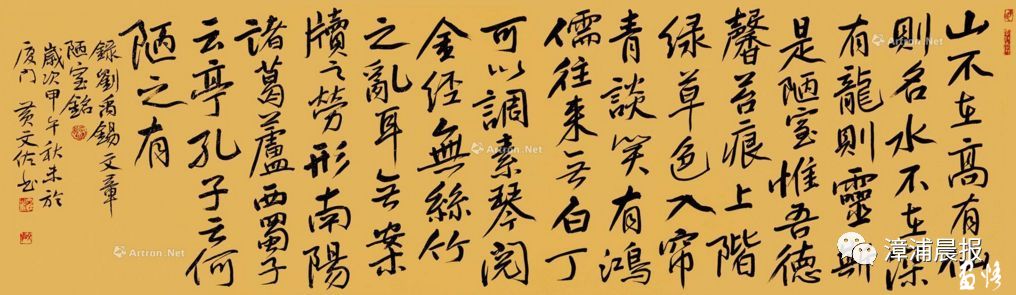 山不在高有仙
則名水不在深
有龍則靈斯
是陋室惟吾德
馨苔痕上階
绿草色入帘
青談笑有鴻
儒往来无白丁
可以調素琴阅
金經無絲竹
之亂耳无案
牘之劳形南陽
諸葛蘆西蜀子
云亭孔子云何
陋之有
錄劉禹錫文章
陋室銘
歲次甲午秋末於
厦门 黄文佐书
Artron.Net
Artron.Net
Artron.Net
Artron.Net
漳浦晨报